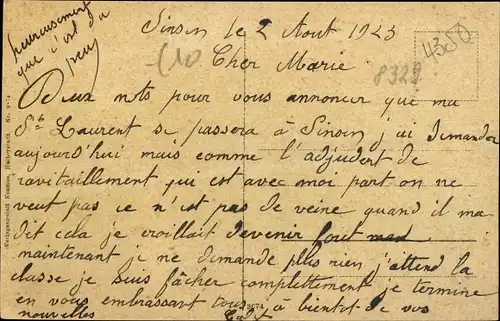 heureusement
que c'est du
peu
Sinsin le 2 Aout 1923
(10
4350
8329
Cher Marie
Deux mots pour vous annoncer que ma
Ste Laurent se passera à Sinsin j'ai demander
aujourd'hui mais comme l'adjudent de
ravitaillement qui est avec moi part on ne
veut pas ce n'est pas de veine quand il ma
dit cela je croillait devenir fout mad
maintenant je ne demande plus rien j'attend la
classe je suis fâcher complettement je termine
en vous embrassant tous, à bientot de vos
nouvelles